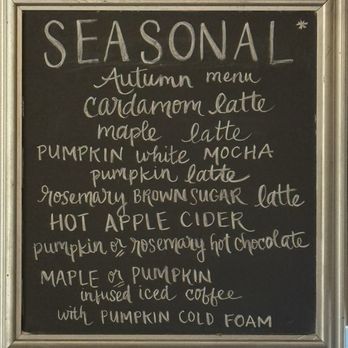 SEASONAL *
Autumn menu
cardamom latte
maple latte
PUMPKIN white MOCHA
pumpkin latte
rosemary BROWN SUGAR latte
HOT APPLE CIDER
pumpkin or rosemary hot chocolate
MAPLE or PUMPKIN
infused iced coffee
with PUMPKIN COLD FOAM